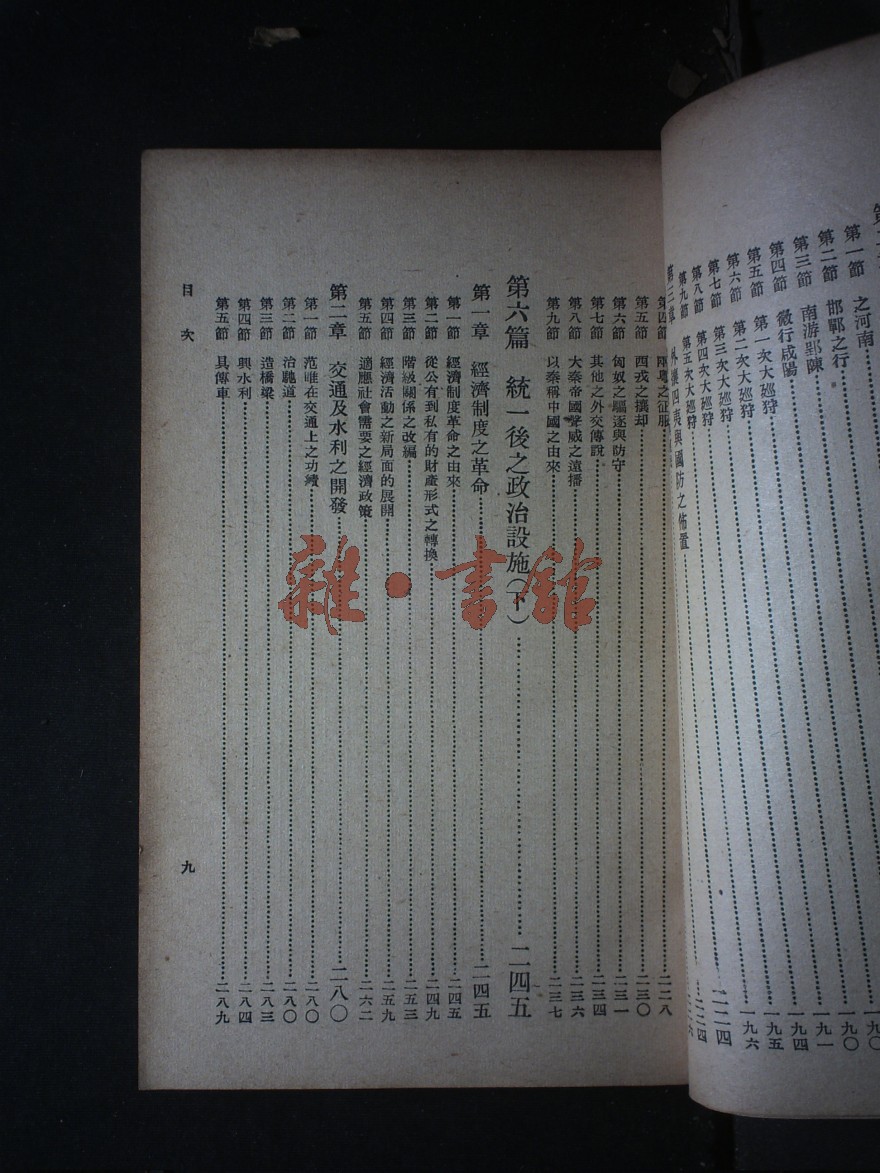 第一節 之河南 一九〇
第二節 邯鄲之行 一九〇
第三節 南游郢陳 一九一
第四節 微行咸陽 一九四
第五節 第一次大巡狩 一九五
第六節 第二次大巡狩 一九六
第七節 第三次大巡狩
第八節 第四次大巡狩
第九節 第五次大巡狩
外攘四夷與國防之佈置
第四節 兩粵之征服 二二八
第五節 西戎之攘却 二三〇
第六節 匈奴之驅逐與防守 二三一
第七節 其他之外交傳說 二三四
第八節 大秦帝國聲威之遠播 二三六
第九節 以秦稱中國之由來 二三七
第六篇 統一後之政治設施(下) 二四五
第一章 經濟制度之革命 二四五
第一節 經濟制度革命之由來 二四五
第二節 從公有到私有的財產形式之轉換 二四九
第三節 階級關係之改編 二五三
第四節 經濟活動之新局面的展開 二五九
第五節 適應社會需要之經濟政策 二六二
第二章 交通及水利之開發 二八〇
第一節 范雎在交通上之功績 二八〇
第二節 治馳道 二八〇
第三節 造橋梁 二八三
第四節 興水利 二八四
第五節 具傳車 二八九
目次 九
雜·書館